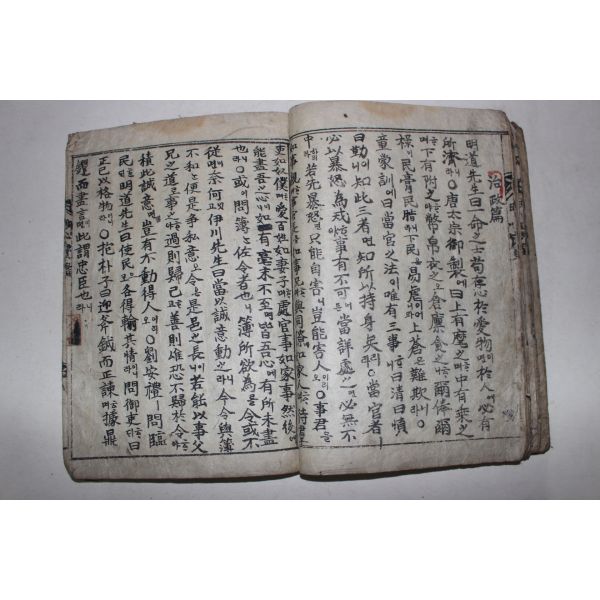 治政篇
明道先生曰一命之士苟存心於愛物이면於人에必有
所濟니라○唐太宗御製에曰上有麾之하고中有乘之하고
下有附之하야幣帛衣之오倉廩食之하니爾俸爾
祿이民膏民脂니라下民은易虐이어니와上蒼은難欺니라○
童蒙訓에曰當官之法이唯有三事하니曰清曰慎
曰勤이니知此三者면知所以持身矣니라○當官者는
必以暴怒爲戒하야事有不可어든當詳處之면必無不
中이어니와若先暴怒면只能自害라豈能害人이리오○事君을
如事親하며事官長을如事兄하며與同僚를如家人하며待羣
吏如奴僕하며愛百姓如妻子하며處官事如家事然後에
能盡吾之心이니如有毫末不至면皆吾心에有所未盡
也니라○或이問簿는佐令者也니簿所欲爲를令或不
從이면奈何오伊川先生曰當以誠意動之니라今令與簿
不和는便是爭私意오令은是邑之長이니若能以事父
兄之道로事之하야過則歸己하고善則唯恐不歸於令하야
積此誠意면豈有不動得人이리오○劉安禮問臨
民한대明道先生曰使民으로各得輸其情이니라問御吏한대曰
正己以格物이니라○抱朴子曰迎斧鉞而正諫하며據鼎
鑊而盡言이면此謂忠臣也니라